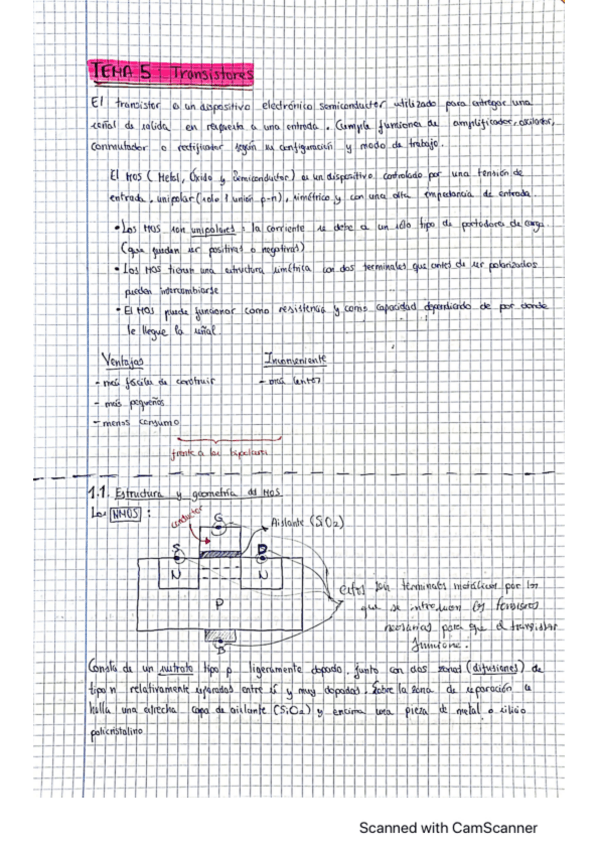 TEMA 5 Transistores
El transistor es un dispositivo electrónico semiconductor utilizado para entregar una
señal de salida en respuesta a una entrada. Cumple funciones de amplificador, oscilador,
conmutador o rectificador según su configuración y modo de trabajo.
El MOS (Metal, Óxido y Semiconductor) es un dispositivo controlado por una tensión de
entrada, unipolar (solo 1 unión p-n), simétrico y con una alta impedancia de entrada.
• Los MOS son unipolares: la corriente se debe a un sólo tipo de portadores de carga.
(que pueden ser positivos o negativos)
• Los MOS tienen una estructura simétrica con dos terminales que antes de ser polarizados
pueden intercambiarse
• El MOS puede funcionar como resistencia y como capacidad dependiendo de por donde
le llegue la señal
Ventajas
Inconveniente
- más fáciles de construir
- más lentos
- más pequeños
- menos consumo
frente a los bipolares
1.1. Estructura y geometría del MOS
Los NMOS:
conductor
G
Aislante (SiO2)
S
D
N
N
P
B
estos son terminales metálicos por los
que se introducen las tensiones
necesarias para que el transistor
funcione.
Consta de un sustrato tipo p ligeramente dopado, junto con dos zonas (difusiones) de
tipo n relativamente separadas entre sí y muy dopadas. Sobre la zona de separación se
halla una estrecha capa de aislante (SiO2) y encima una pieza de metal o silicio
policristalino
Scanned with CamScanner